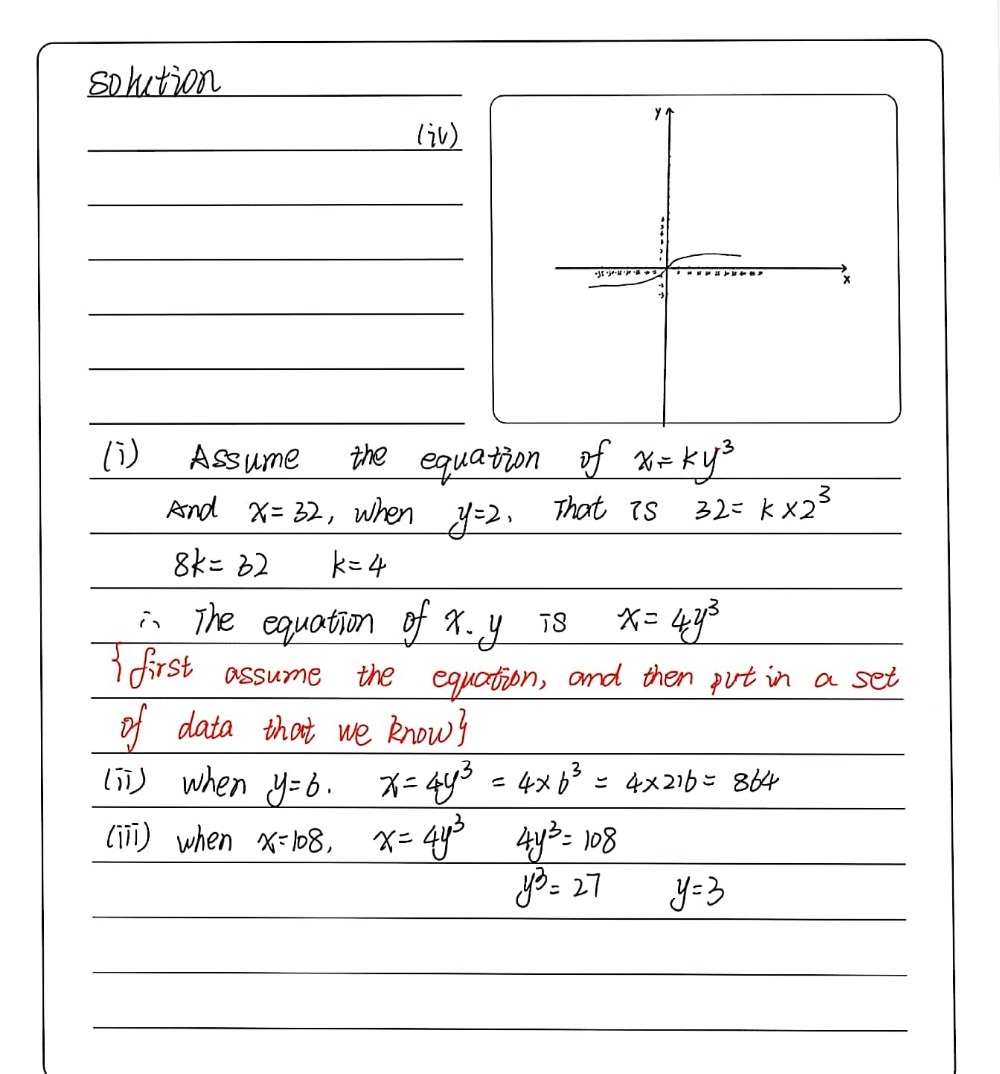 solution
(iv)
y
x
(i) Assume the equation of x=ky³
And x=32, when y=2. That is 32=k×2³
8k=32 k=4
∴ The equation of x.y is x=4y³
{first assume the equation, and then put in a set
of data that we know}
(ii) when y=6. x=4y³ = 4×6³ = 4×216= 864
(iii) when x=108, x=4y³ 4y³=108
y³=27 y=3